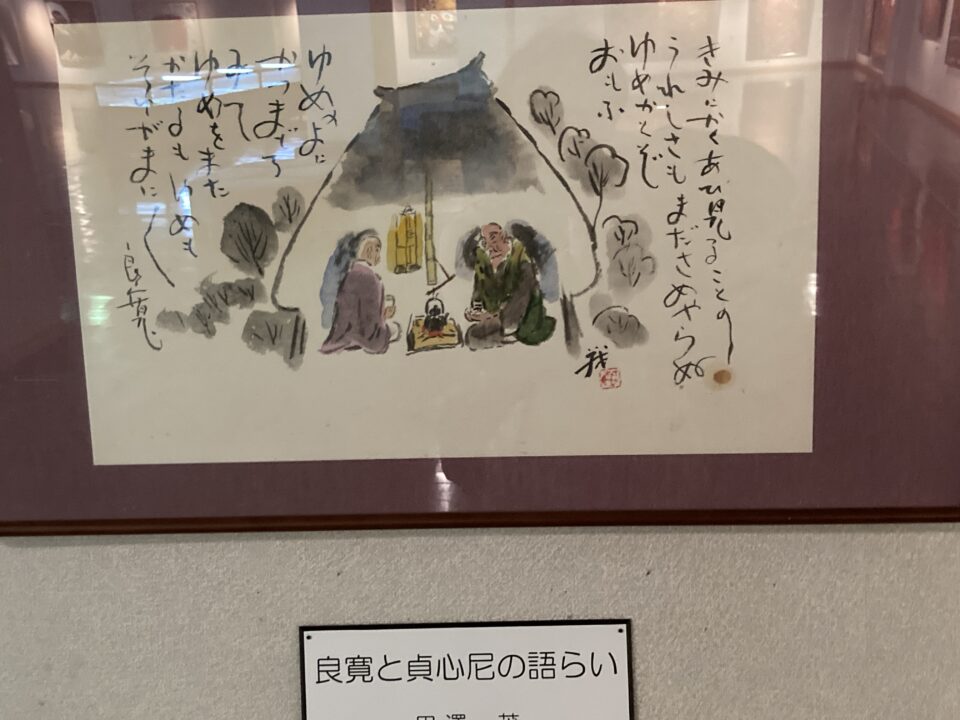 きみにかくあひ見ることの
うれしさもまださめやらぬ
ゆめかとぞ
おもふ
ゆめのよに
かつまどろ
みて
ゆめをまた
かたるもゆめも
それがまに〱
良寛
良寛と貞心尼の語らい